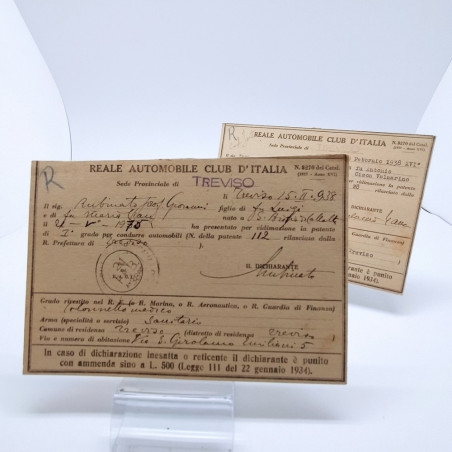 R
REALE AUTOMOBILE CLUB D'ITALIA
Sede Provinciale di TREVISO
N. 8270 del Catal.
Treviso 15.II.938
Il sig. Rubinato prof. Giovanni figlio di fu Luigi
e di fu Maria nato a
il 21 - V - 1875 ha presentato per vidimazione la patente
di I° grado per condurre automobili (N. della patente 112 rilasciata dalla
R. Prefettura di Treviso
IL DICHIARANTE
Grado rivestito nel R. E. o R. Marina, o R. Aeronautica, o R. Guardia di Finanza
Colonnello medico
Arma (specialità o servizi) Sanitario
Comune di residenza Treviso (distretto di residenza Treviso)
Via e numero di abitazione Via S. Girolamo Emiliani 5
In caso di dichiarazione inesatta o reticente il dichiarante è punito
con ammenda sino a L. 500 (Legge 111 del 22 gennaio 1934).
R
REALE AUTOMOBILE CLUB D'ITALIA
Sede Provinciale di
N. 8270 del Catal.
Febbraio 1938 XVI°
fu Antonio
Cison Valmarino
vidimazione la patente
rilasciata dalla
DICHIARANTE
Guardia di Finanza)